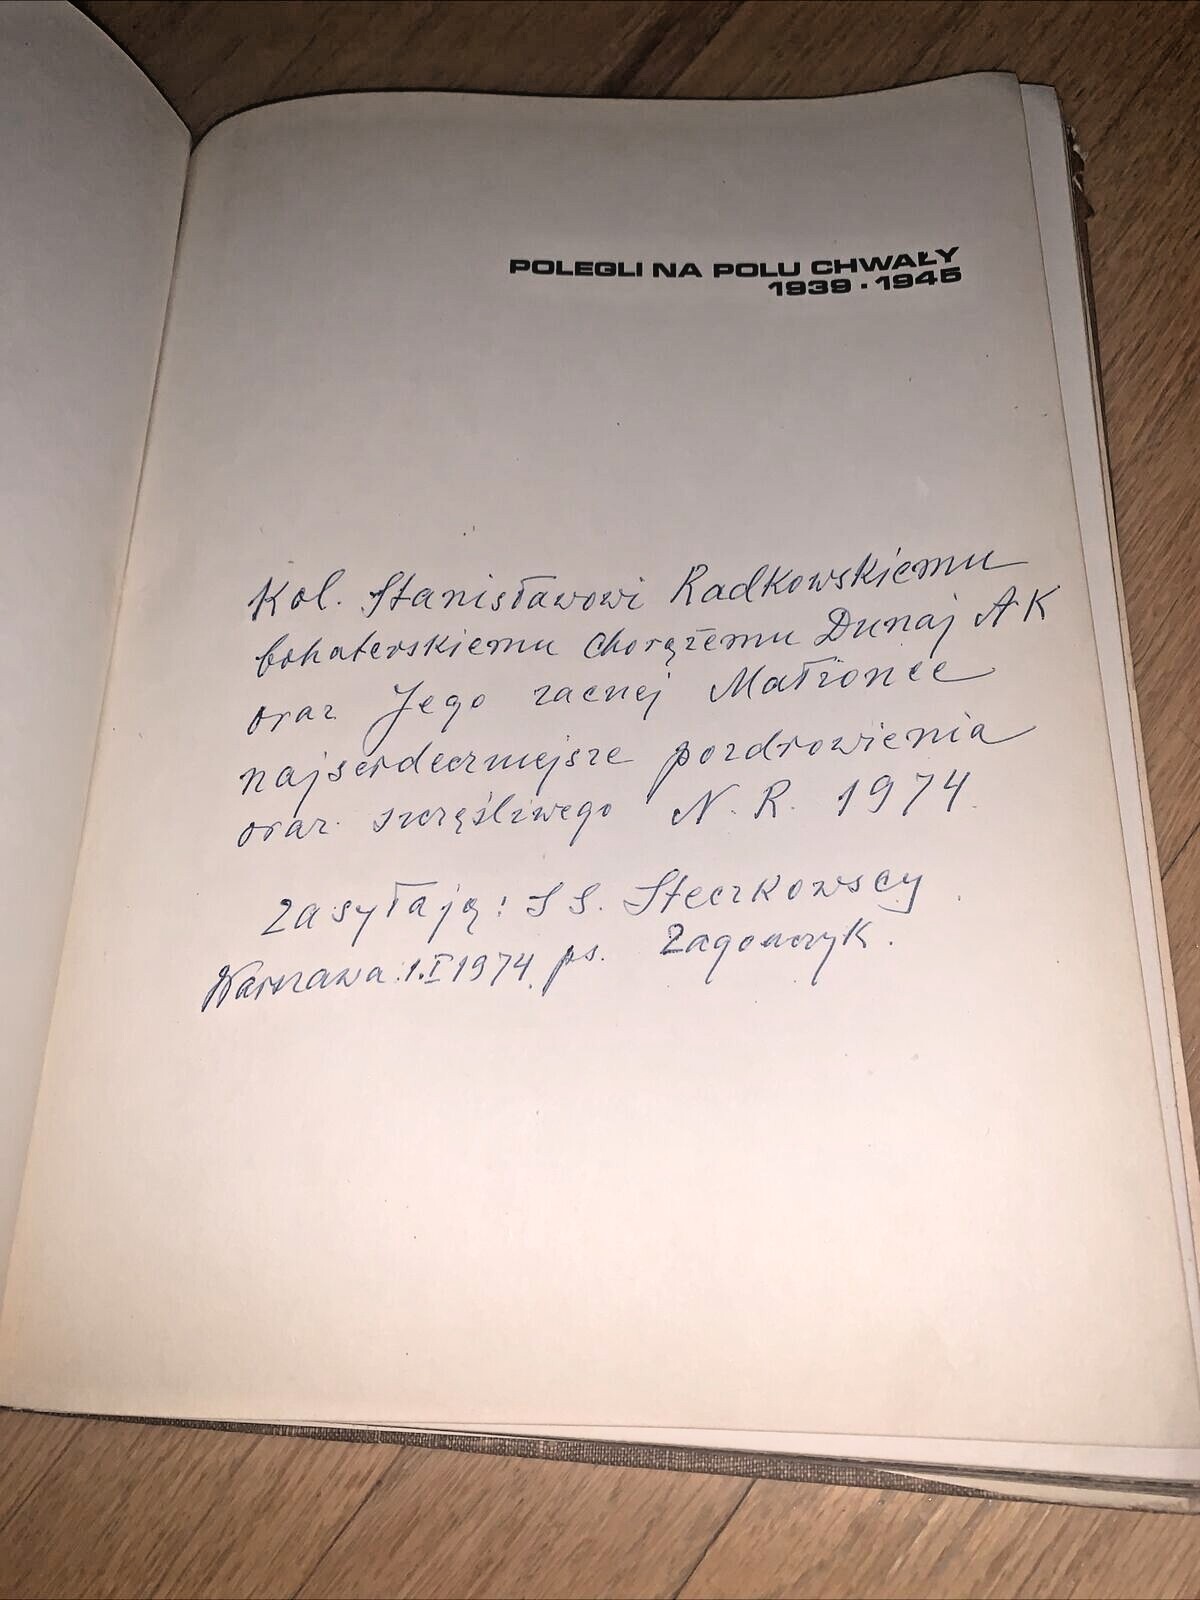 POLEGLI NA POLU CHWAŁY
1939 • 1945
Kol. Stanisławowi Radkowskiemu
bohaterskiemu Chorążemu Dunaj AK
oraz Jego zacnej Małżonce
najserdeczniejsze pozdrowienia
oraz szczęśliwego N. R. 1974
zasyłają: S S. Steczkowscy
Warszawa 1.I 1974. ps. Zagończyk.